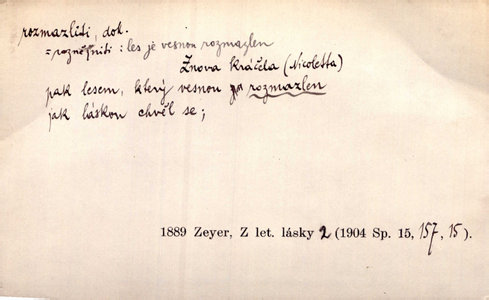 rozmazliti, dok.
= rozněžniti : les je vesnou rozmazlen
Znova kráčela (Nicoletta)
pak lesem, který vesnou rozmazlen
jak láskou chvěl se;
1889 Zeyer, Z let. lásky 2 (1904 Sp. 15, 157, 15).